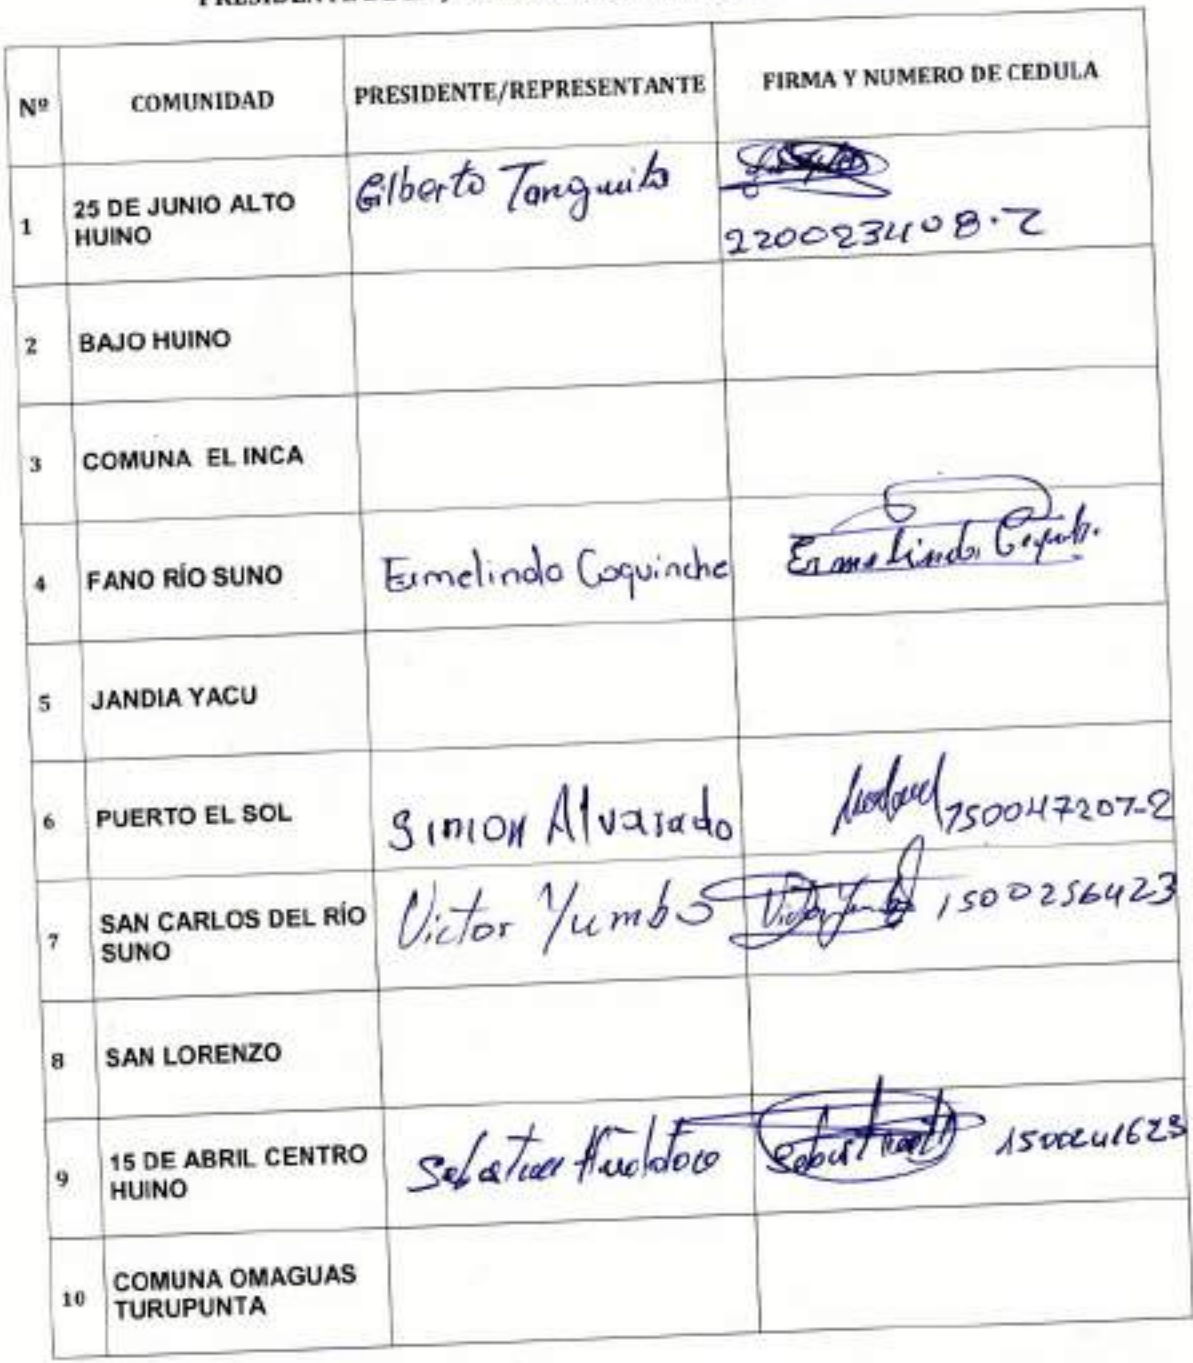 Nº COMUNIDAD PRESIDENTE/REPRESENTANTE FIRMA Y NUMERO DE CEDULA
1 25 DE JUNIO ALTO HUINO Gilberto Tanguila 220023408-7
2 BAJO HUINO
3 COMUNA EL INCA
4 FANO RÍO SUNO Ermelindo Coquinche Ermelindo
5 JANDIA YACU
6 PUERTO EL SOL Simon Alvarado 150047207-2
7 SAN CARLOS DEL RÍO SUNO Victor Yumbo Victor Yumbo 1500256423
8 SAN LORENZO
9 15 DE ABRIL CENTRO HUINO
10 COMUNA OMAGUAS TURUPUNTA